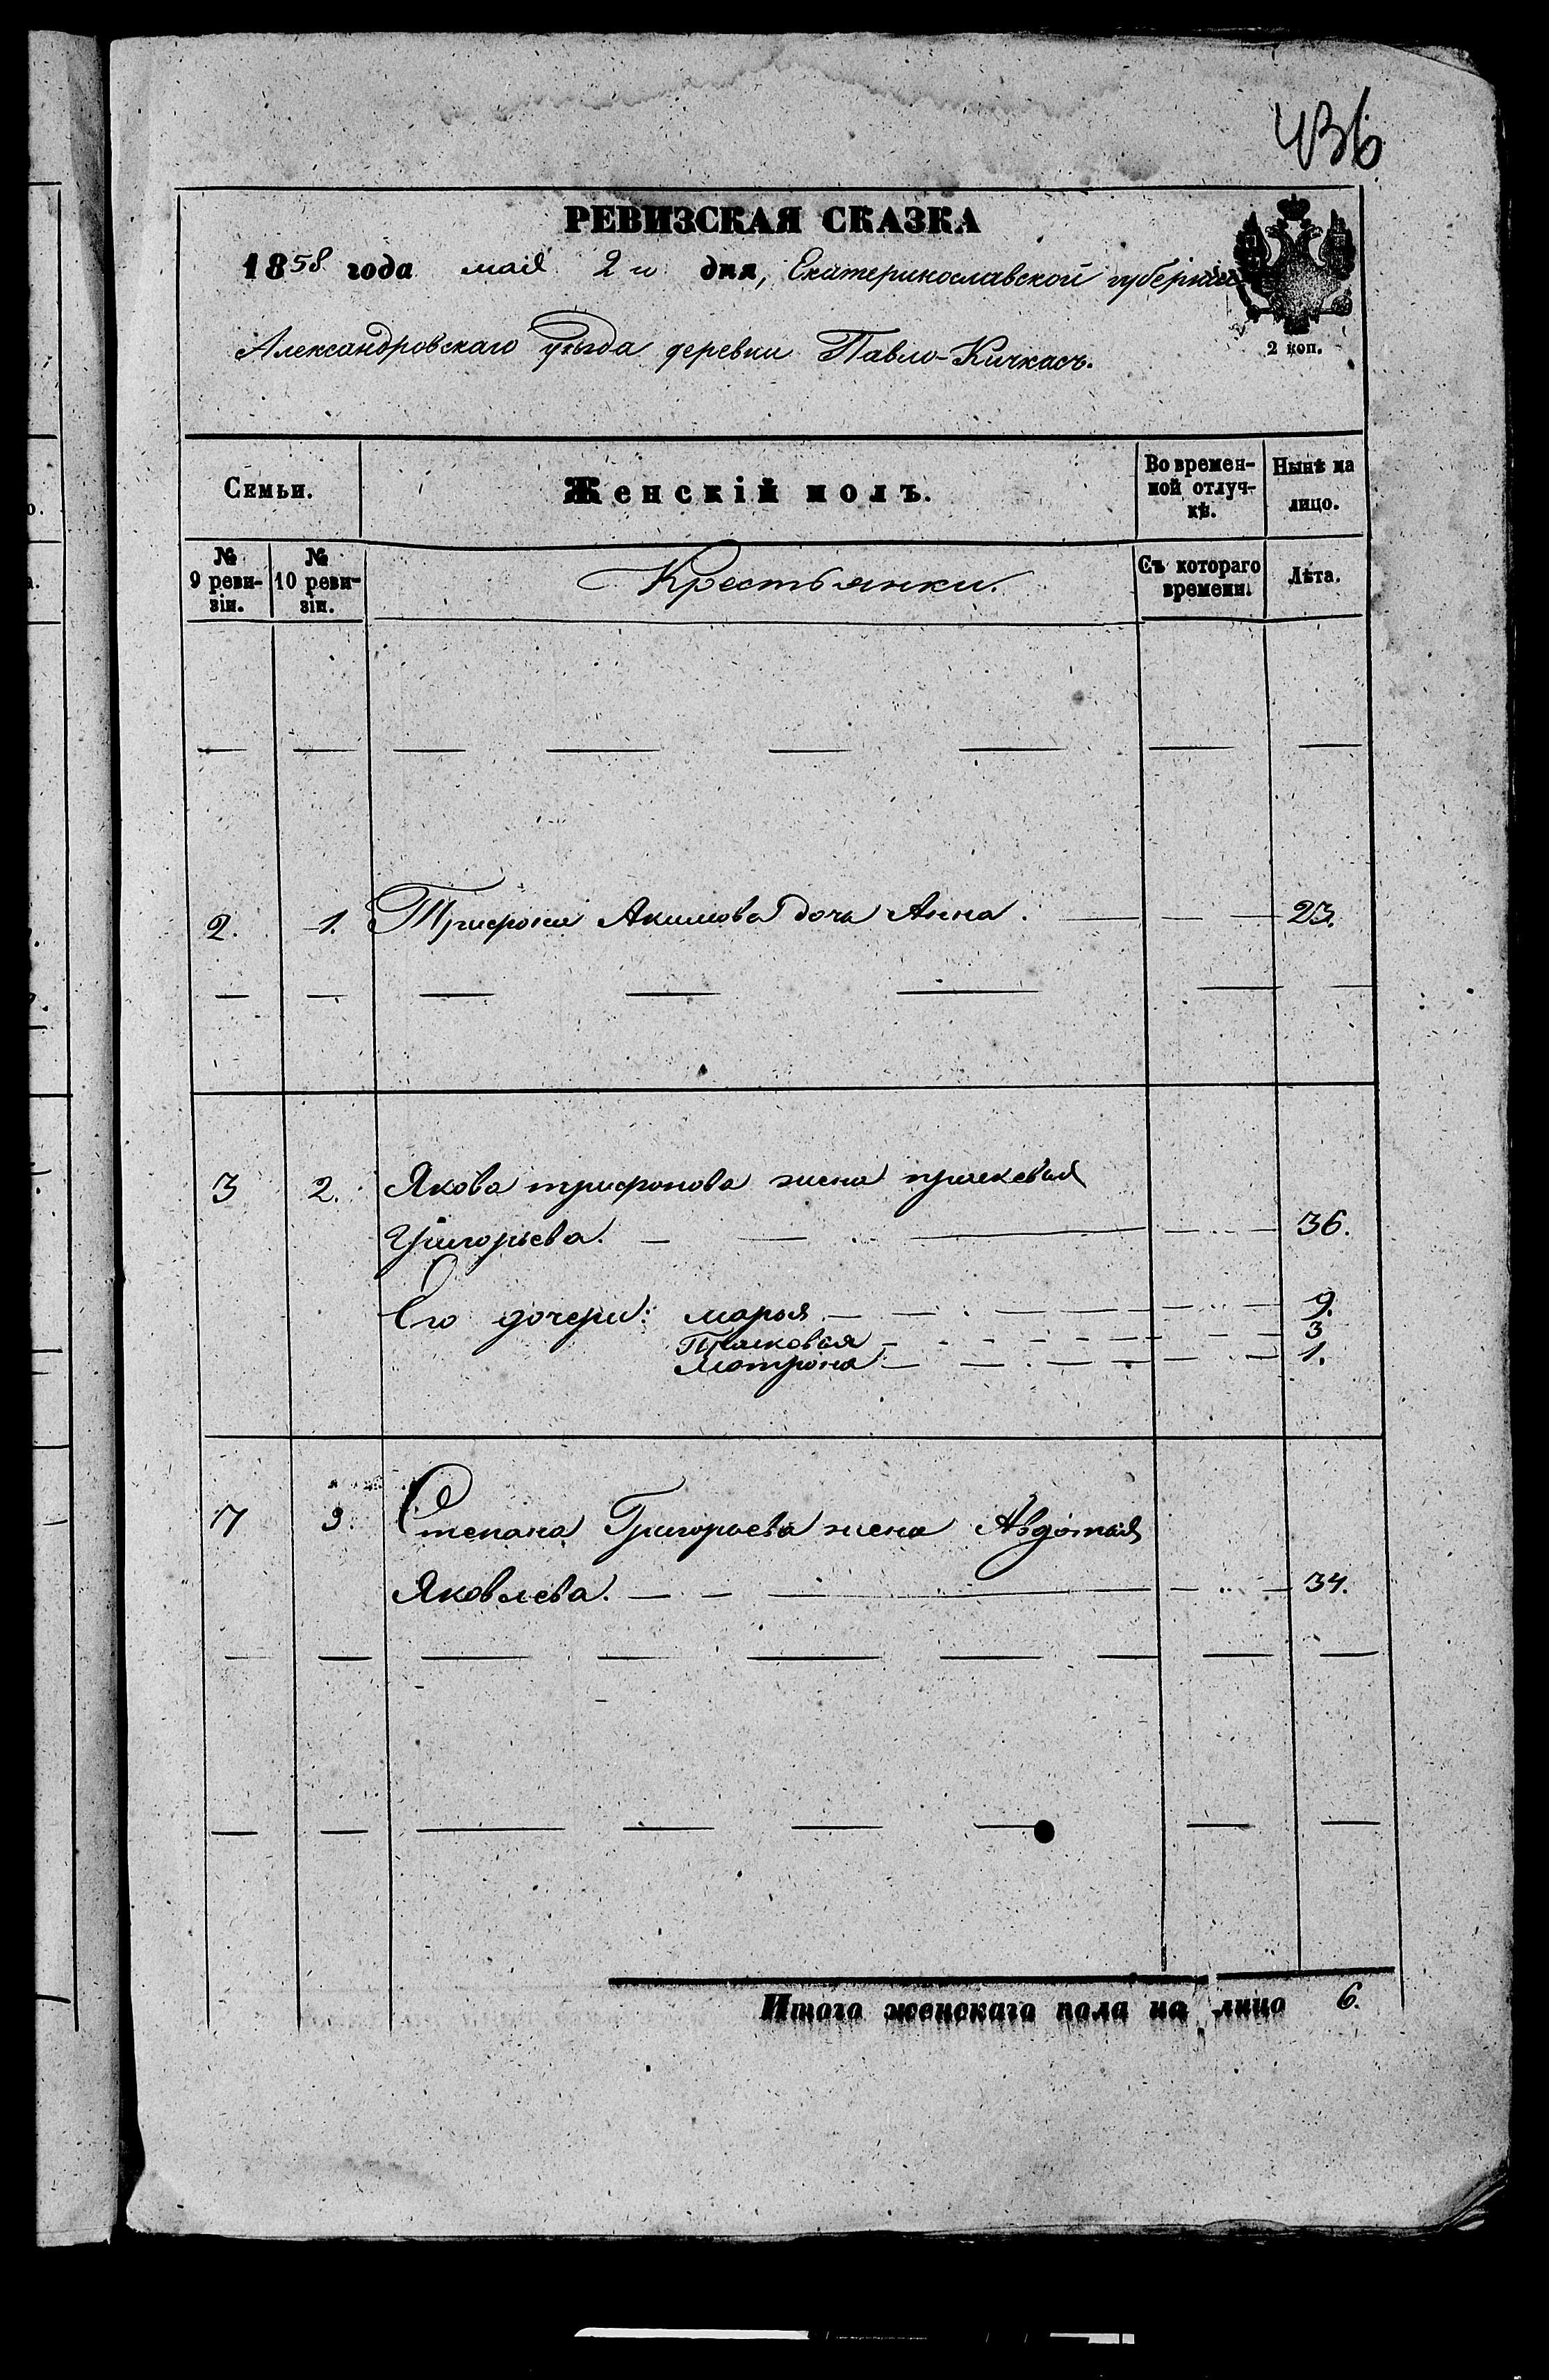 436
РЕВИЗСКАЯ СКАЗКА
1858 года маія 2 го дня, Екатеринославской губерніи
Александровскаго уѣзда деревни Павло-Кичкасъ.
2 коп.
Семьи. Женскій полъ. Во времен- Нынѣ на
ной отлуч- лицо.
кѣ.
№ № Крестьянки. Съ котораго Лѣта.
9 реви- 10 реви- времени.
зіи. зіи.
2. 1. Трифона Акимова дочь Анна. 23.
3 2. Якова трифонова жена праскевія
Григорьева. 36.
Его дочери: марья 9.
Прасковія 3
Матрона 1.
7 3. Степана Григорьева жена Авдотья
Яковлева. 34.
Итого женскаго пола на лицо 6.